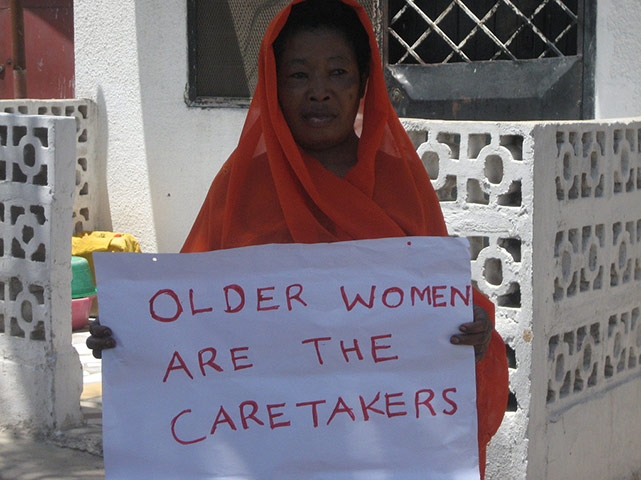 OLDER WOMEN
ARE THE
CARETAKERS